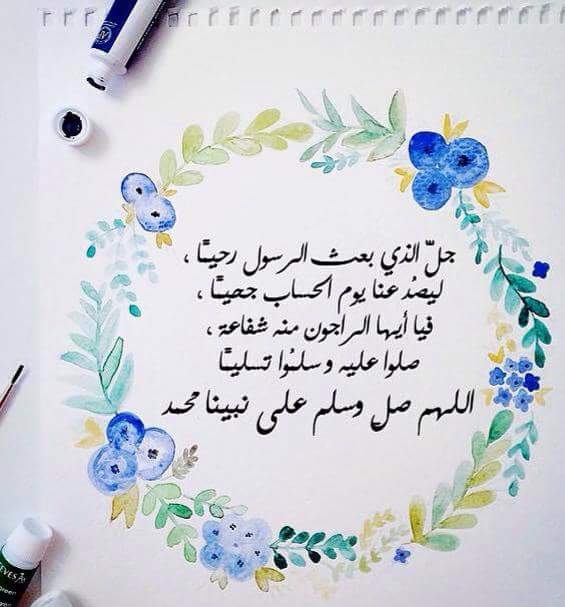 جلّ الذي بعث الرسول رحيمًا ،
ليصُد عنا يوم الحساب جحيمًا ،
فيا أيها الراجون منه شفاعة ،
صلوا عليه وسلمُوا تسليمًا
اللهم صل وسلم على نبينا محمد